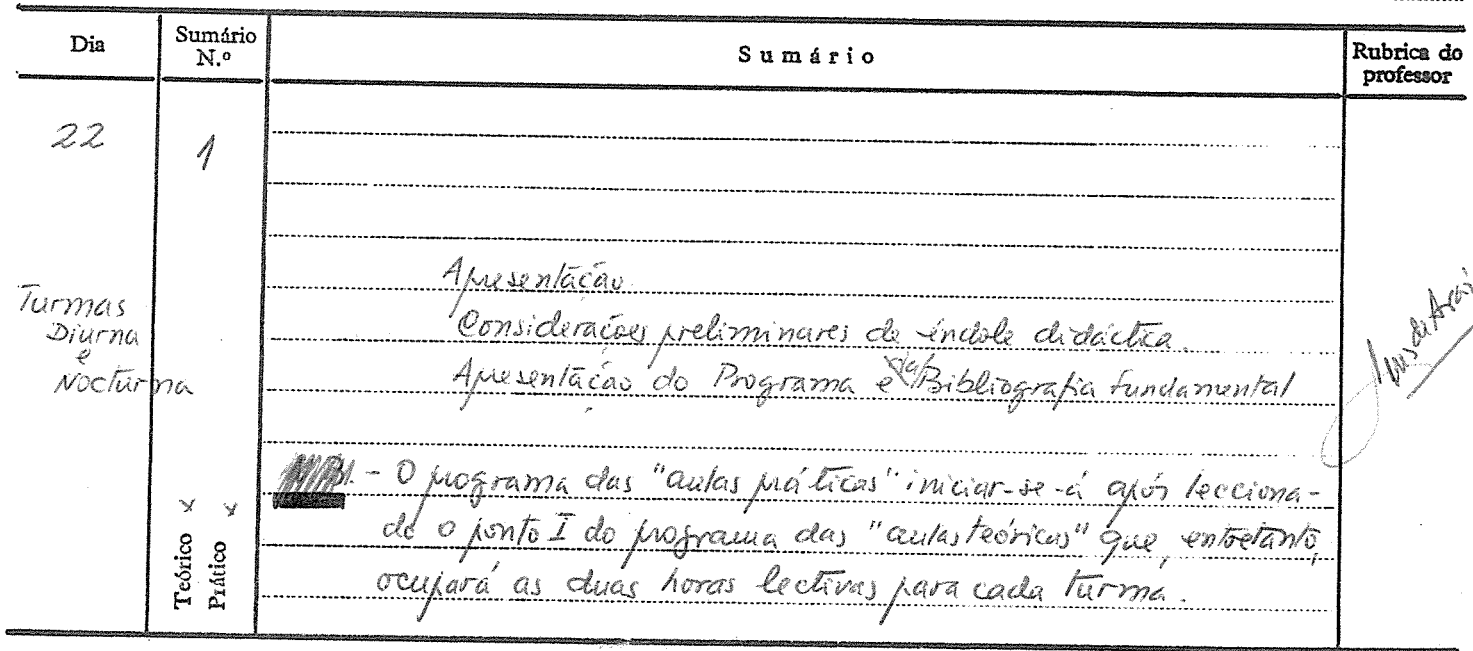 Dia
Sumário N.º
Sumário
Rubrica do professor
22
1
Turmas
Diurna
e
Nocturna
Apresentação
Considerações preliminares de índole didáctica.
Apresentação do Programa e da Bibliografia fundamental
- O programa das "aulas práticas" iniciar-se-á após lecciona-
do o ponto I do programa das "aulas teóricas" que, entretanto,
ocupará as duas horas lectivas para cada turma.
Teórico x
Prático x